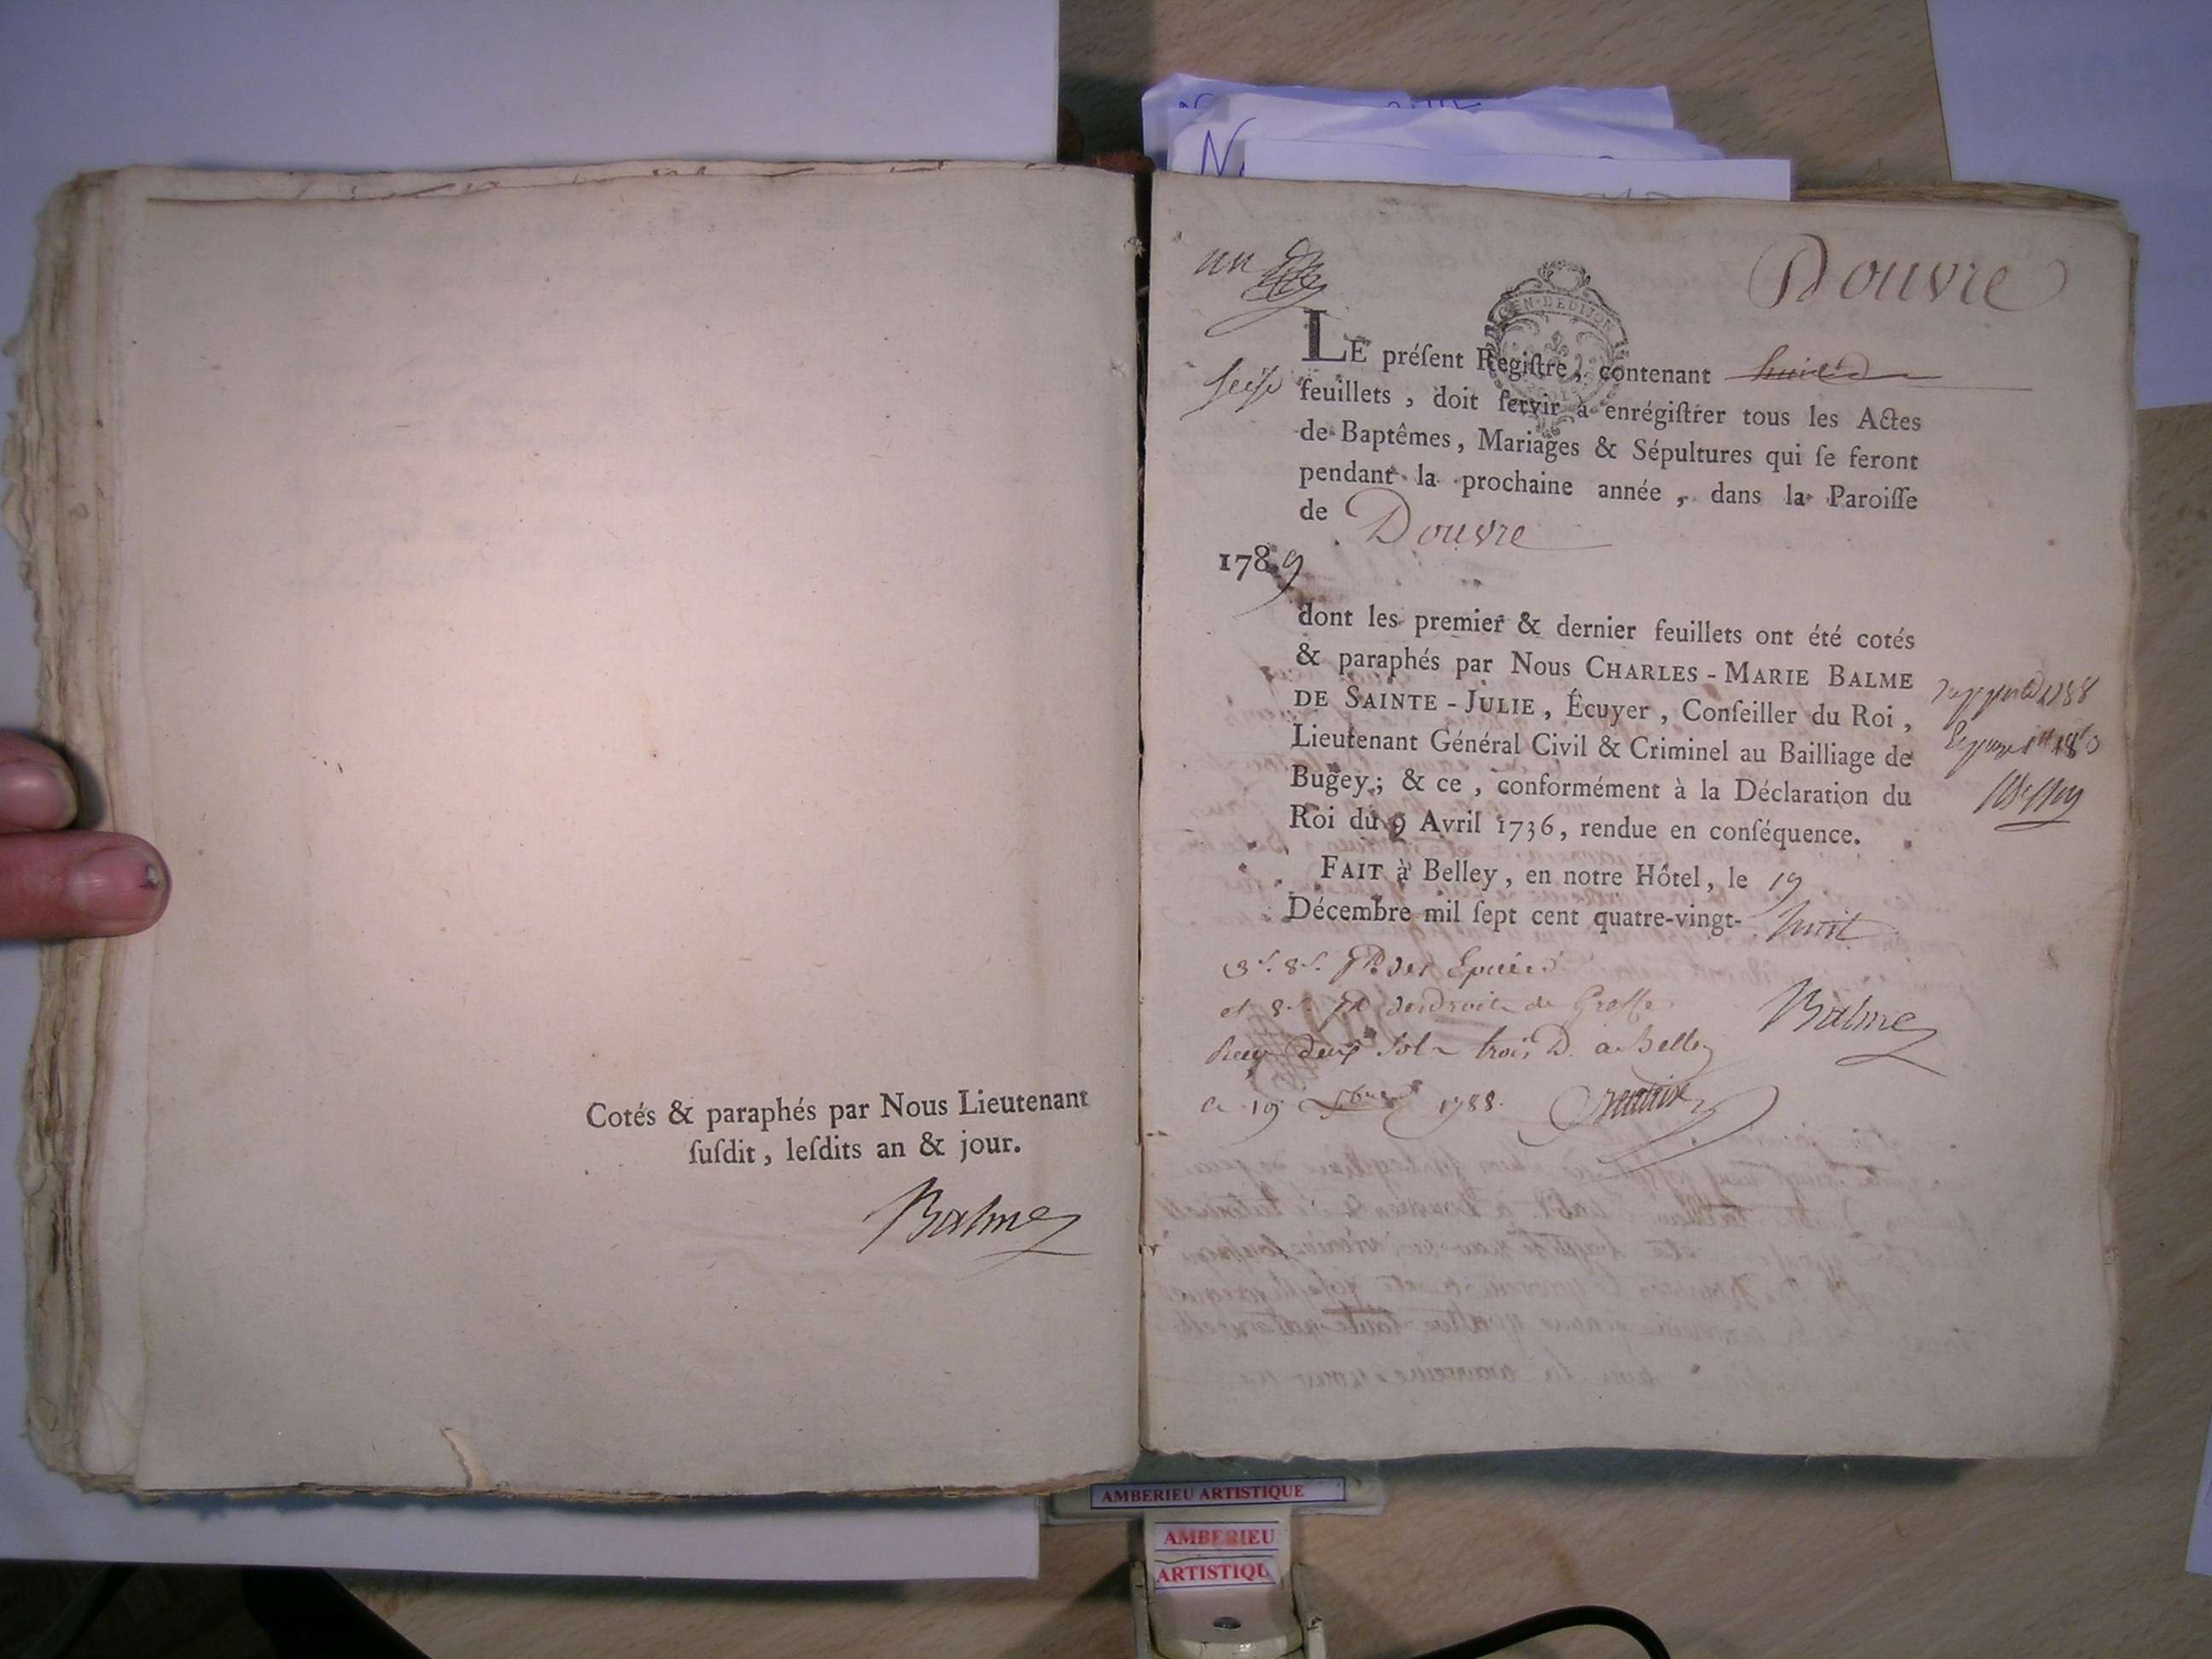 Cotés & paraphés par Nous Lieutenant
ſuſdit, leſdits an & jour.
Balme
un
Douvre
GEN·DE DIJON
LE préſent Regiſtre, contenant
ſeize
feuillets, doit ſervir à enrégiſtrer tous les Actes
de Baptêmes, Mariages & Sépultures qui ſe feront
pendant la prochaine année, dans la Paroiſſe
de Douvre
1789
dont les premier & dernier feuillets ont été cotés
& paraphés par Nous CHARLES-MARIE BALME
DE SAINTE-JULIE, Écuyer, Conſeiller du Roi,
Lieutenant Général Civil & Criminel au Bailliage de
Bugey; & ce, conformément à la Déclaration du
Roi du 9 Avril 1736, rendue en conſéquence.
FAIT à Belley, en notre Hôtel, le 19
Décembre mil ſept cent quatre-vingt-huit
3 s. 8 s. pr des Epices
et 8 s. pr des Droits de Greffe
Balme
Reçu deux sols trois D. a Belley
Ce 19 Xbre 1788.
AMBERIEU ARTISTIQUE
AMBERIEU
ARTISTIQU